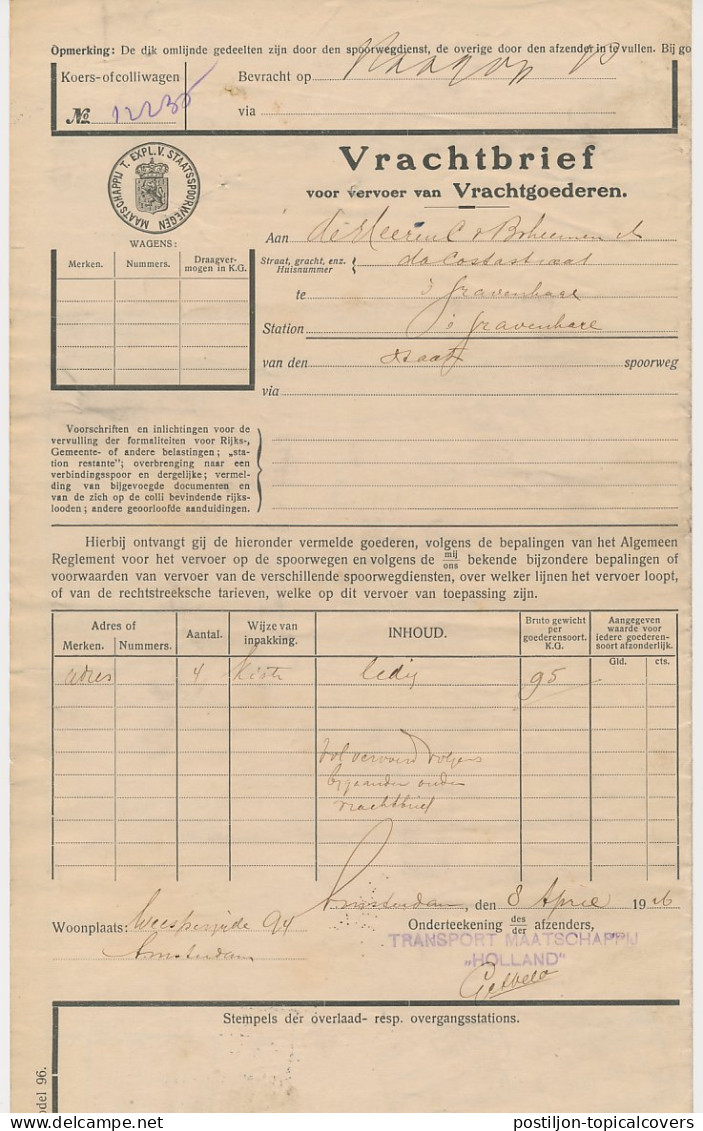 Opmerking: De dik omlijnde gedeelten zijn door den spoorwegdienst, de overige door den afzender in te vullen. Bij go
Koers- of colliwagen
No 12235
Bevracht op
via
MAATSCHAPPIJ T. EXPL. V. STAATSSPOORWEGEN
Vrachtbrief
voor vervoer van Vrachtgoederen.
WAGENS:
Merken. Nummers. Draagver-
mogen in K.G.
Aan de Heeren C v Boheemen et
Straat, gracht, enz.
Huisnummer da Costastraat
te 's Gravenhage
Station 's Gravenhage
van den Staats spoorweg
via
Voorschriften en inlichtingen voor de
vervulling der formaliteiten voor Rijks-,
Gemeente- of andere belastingen; „sta-
tion restante"; overbrenging naar een
verbindingsspoor en dergelijke; vermel-
ding van bijgevoegde documenten en
van de zich op de colli bevindende rijks-
looden; andere geoorloofde aanduidingen.
Hierbij ontvangt gij de hieronder vermelde goederen, volgens de bepalingen van het Algemeen
Reglement voor het vervoer op de spoorwegen en volgens de mij/ons bekende bijzondere bepalingen of
voorwaarden van vervoer van de verschillende spoorwegdiensten, over welker lijnen het vervoer loopt,
of van de rechtstreeksche tarieven, welke op dit vervoer van toepassing zijn.
Adres of
Merken. Nummers.
Aantal.
Wijze van
inpakking.
INHOUD.
Bruto gewicht
per
goederensoort.
K.G.
Aangegeven
waarde voor
iedere goederen-
soort afzonderlijk.
Gld. cts.
adres 4 Kisten ledig 95
vol vervoerd volgens
bygaanden ouden
vrachtbrief
Amsterdam, den 8 April 1926
Woonplaats: Weesperzijde 94
Amsterdam
Onderteekening des/der afzenders,
TRANSPORT MAATSCHAPPIJ
„HOLLAND"
Stempels der overlaad- resp. overgangsstations.
odel 96.
postiljon-topicalcovers @ delcampe.net